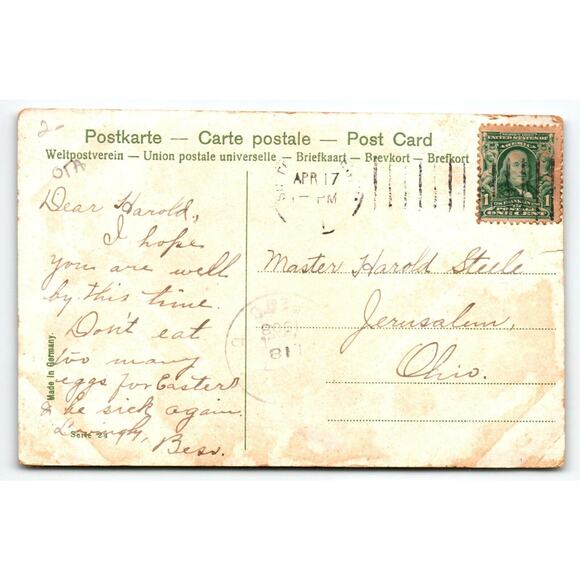 2-
Postkarte — Carte postale — Post Card
Weltpostverein — Union postale universelle — Briefkaart — Brevkort — Brefkort
APR 17
PM
UNITED STATES OF
AMERICA
1 1
FRANKLIN
POSTAGE
ONE CENT
Dear Harold,
I hope
you are well
by this time.
Don't eat
too many
eggs for Easter
& be sick again.
Lovingly,
Bess.
Made in Germany.
Serie 24
Master Harold Steele
Jerusalem,
Ohio.
18